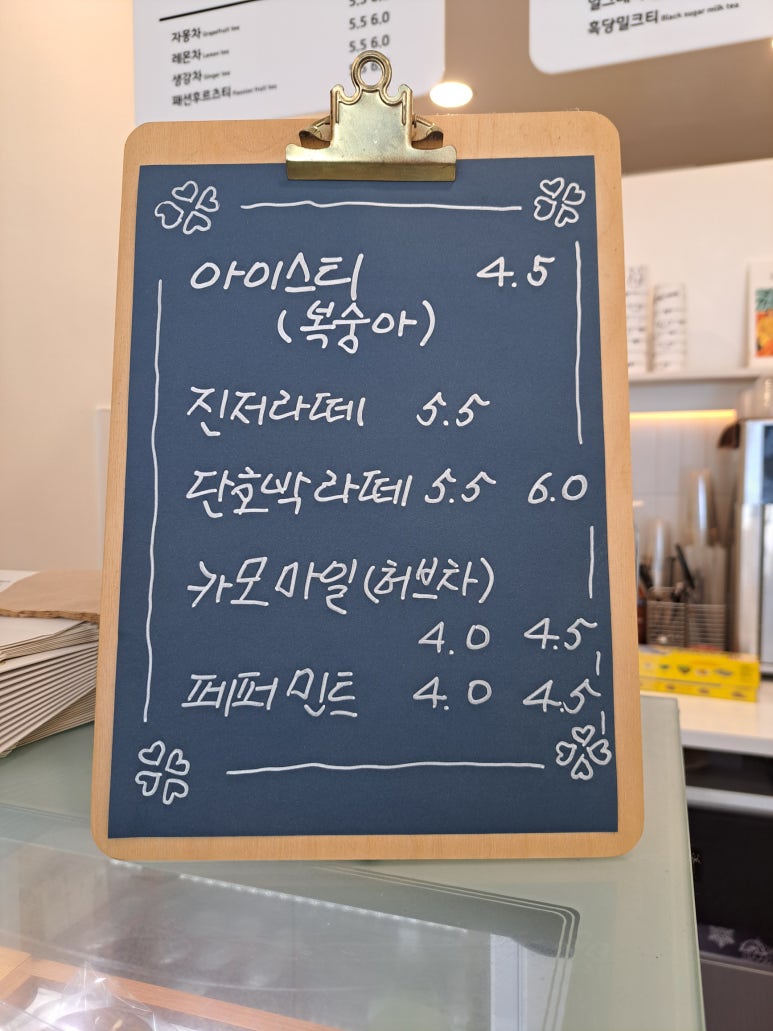 5.5 6.0
자몽차 Grapefruit tea 5.5 6.0
레몬차 Lemon tea 5.5 6.0
생강차 Ginger tea
패션후르츠티 Passion fruit tea
흑당밀크티 Black sugar milk tea
아이스티 4.5
(복숭아)
진저라떼 5.5
단호박라떼 5.5 6.0
카모마일(허브차)
4.0 4.5
페퍼민트 4.0 4.5